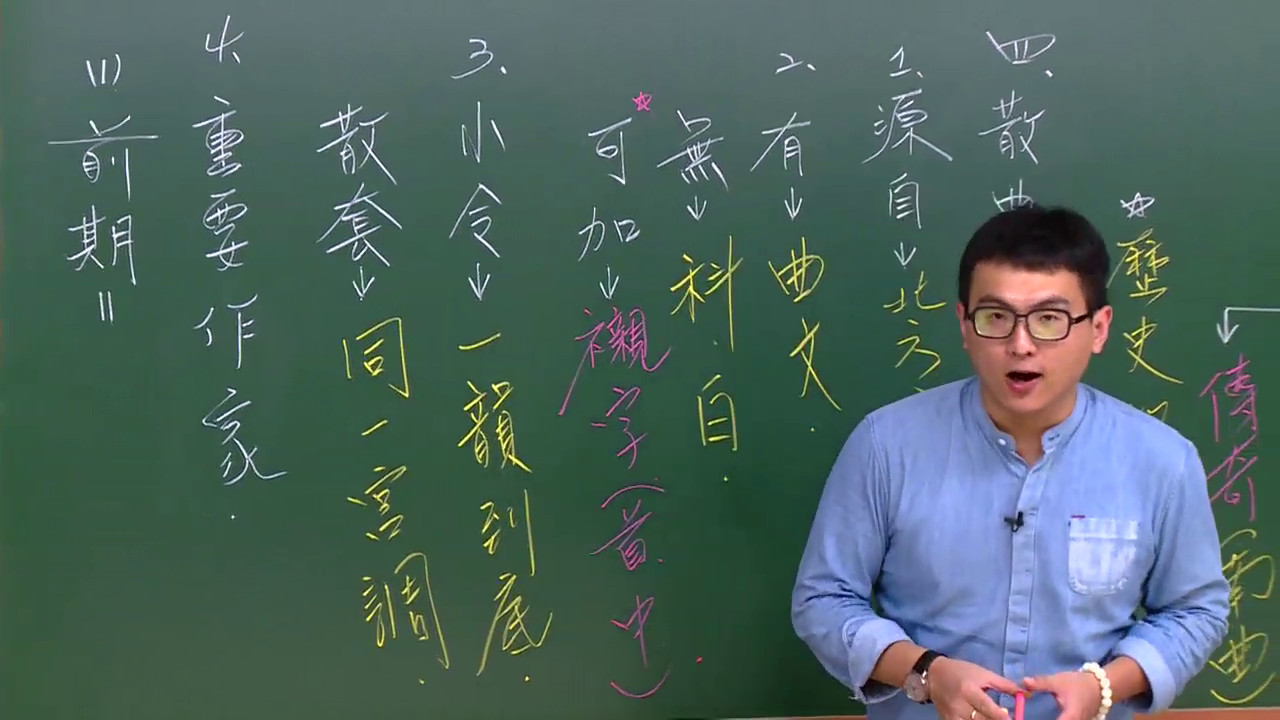 傳奇(南曲)
☆歷史
四、散曲
1.源自↓北方
2.有↓曲文.
無↓科.白.
☆可加↓襯字(首.中).
3.小令↓一韻到底.
散套↓同一宮調.
4.重要作家.
(1)前期=